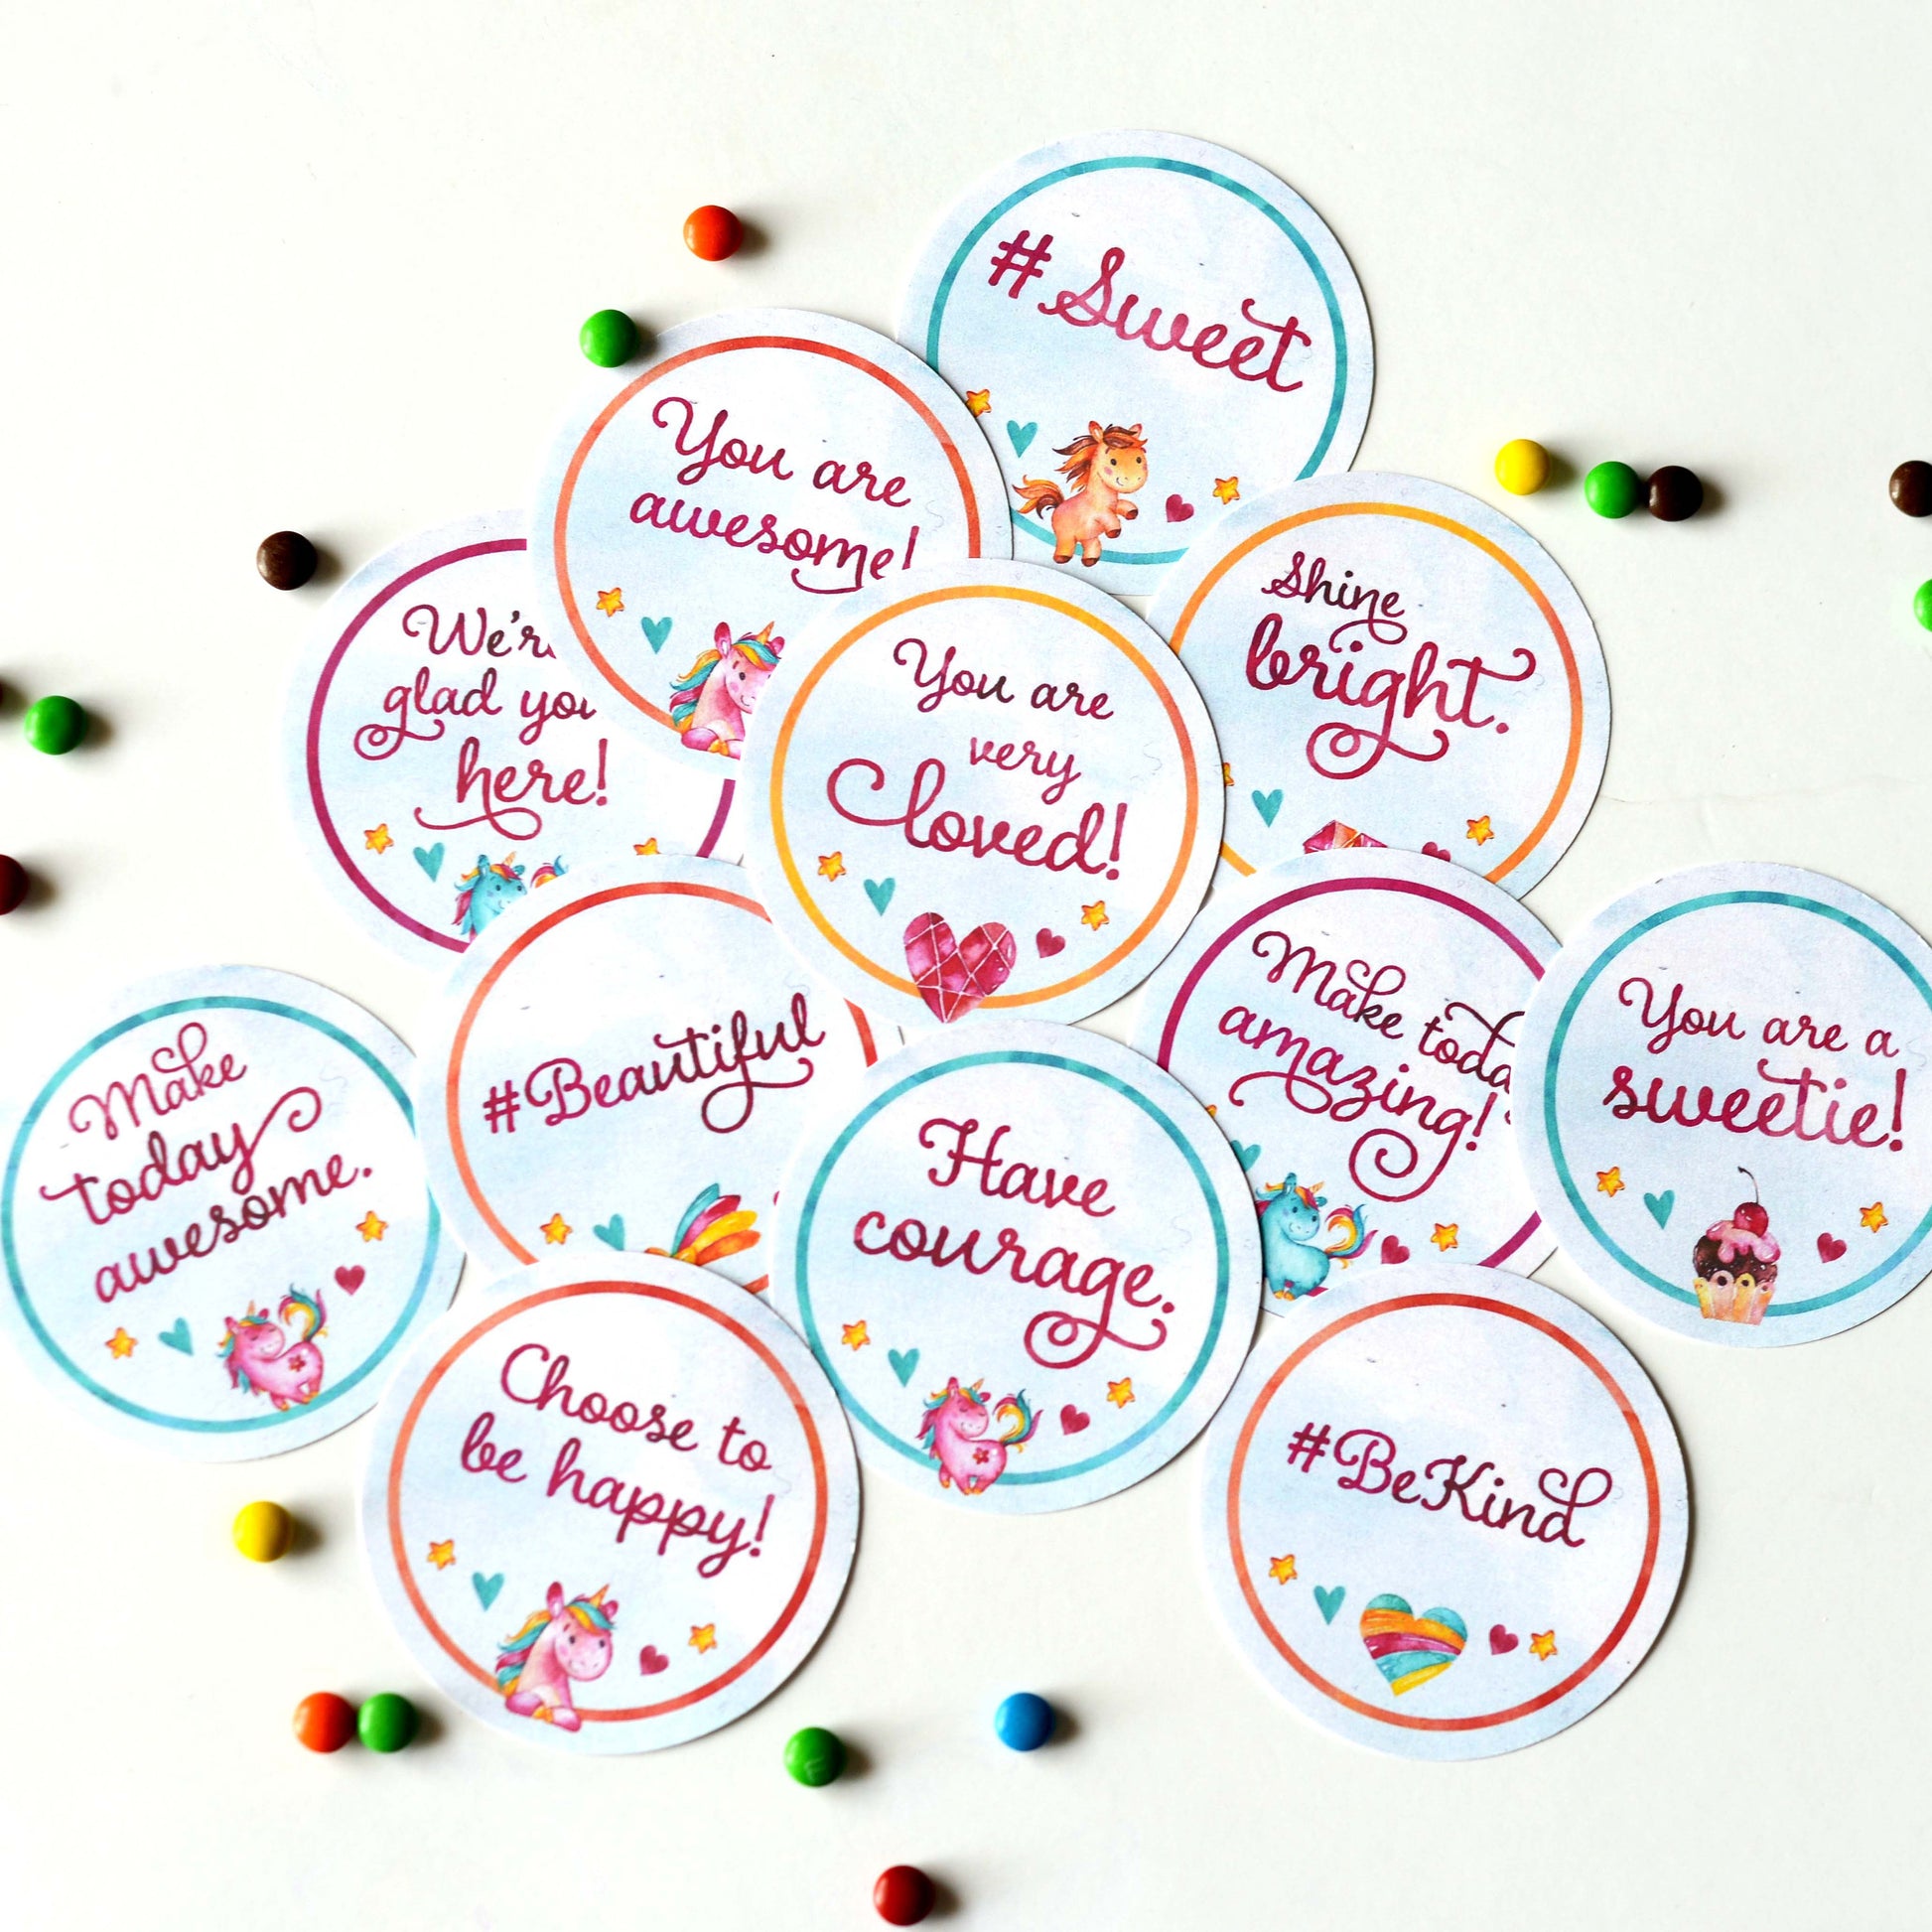 # Sweet
You are
awesome!
Shine
bright.
glad
here!
You are
very
loved!
Make
amazing!
You are a
sweetie!
Make
today
awesome.
#Beautiful
Have
courage.
Choose to
be happy!
#BeKind